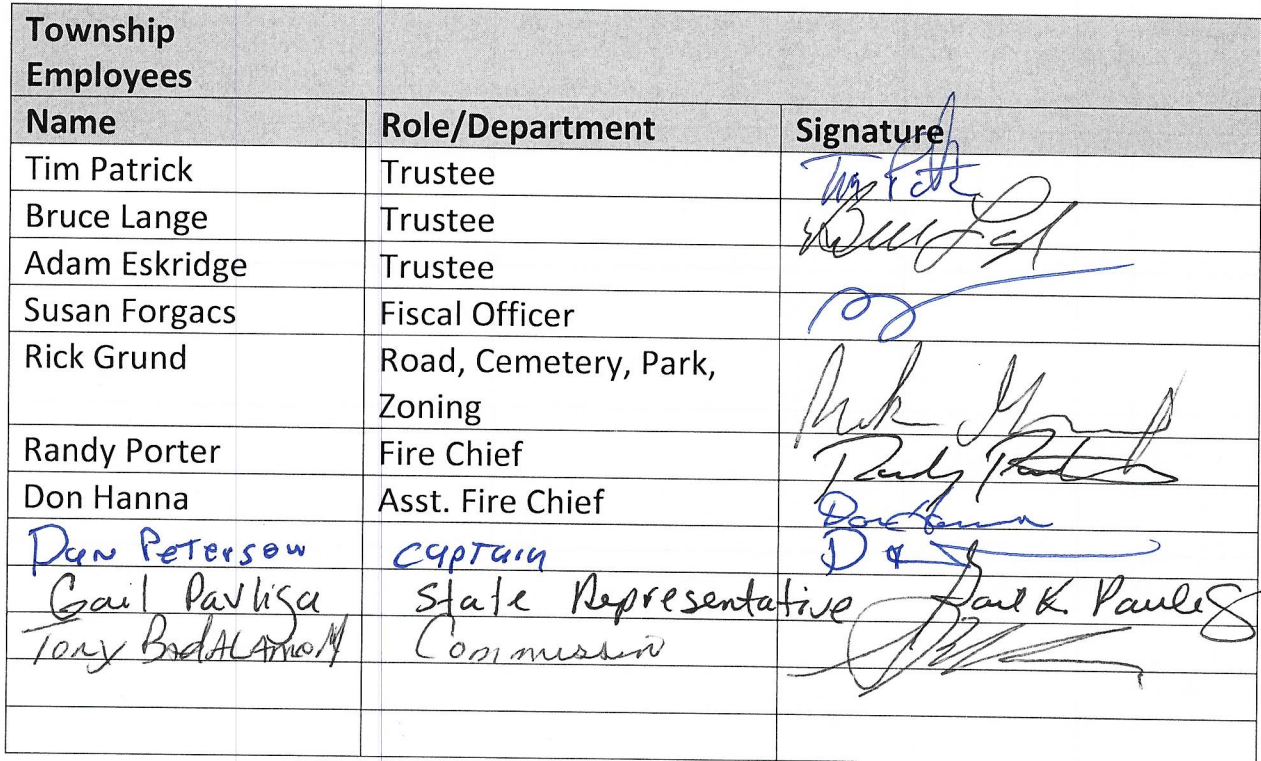 Township
Employees
Name Role/Department Signature
Tim Patrick Trustee
Bruce Lange Trustee
Adam Eskridge Trustee
Susan Forgacs Fiscal Officer
Rick Grund Road, Cemetery, Park,
Zoning
Randy Porter Fire Chief Randy
Don Hanna Asst. Fire Chief Don Hanna
Dan Peterson Captain
Gail Pavliga State Representative Gail K. Pavliga
Tony